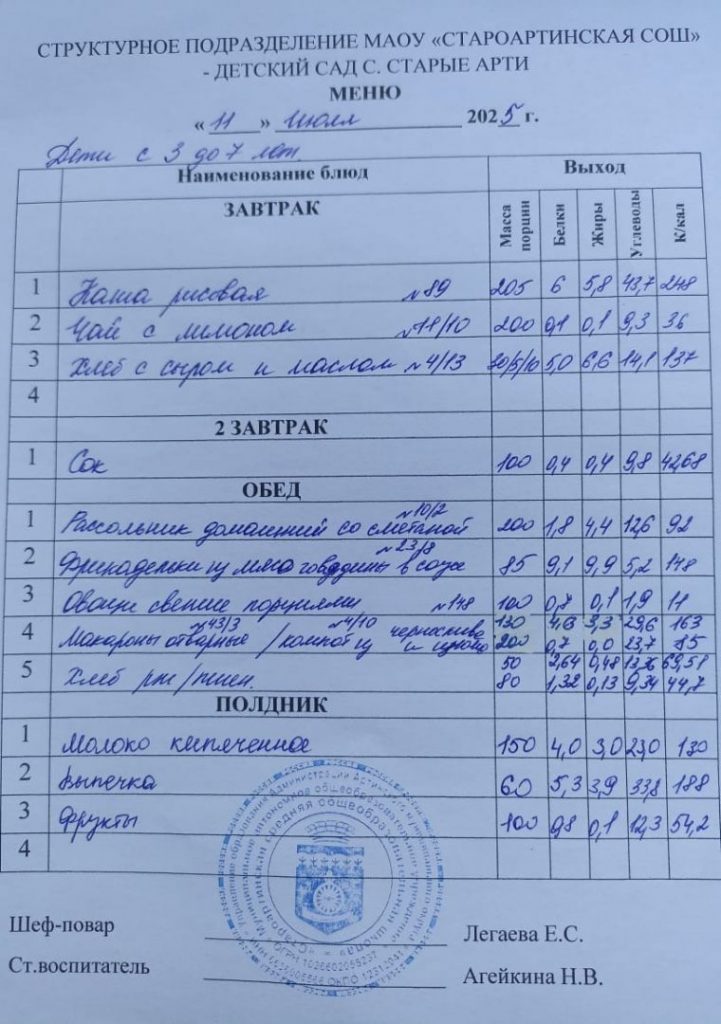 СТРУКТУРНОЕ ПОДРАЗДЕЛЕНИЕ МАОУ «СТАРОАРТИНСКАЯ СОШ»
- ДЕТСКИЙ САД С. СТАРЫЕ АРТИ
МЕНЮ
« 11 » Июля 2025 г.
Дети с 3 до 7 лет.
Наименование блюд Выход
ЗАВТРАК Масса порции Белки Жиры Углеводы К/кал
1 Каша рисовая №89 205 6 5,8 43,7 248
2 Чай с лимоном №11/10 200 0,1 0,1 9,3 36
3 Хлеб с сыром и маслом №4/13 30/5/10 5,0 6,6 14,1 137
4
2 ЗАВТРАК
1 Сок 100 0,4 0,4 9,8 42,68
ОБЕД
1 Рассольник домашний со сметаной №10/2 200 1,8 4,4 12,6 92
2 Фрикадельки из мяса говядины в соусе №23/8 85 9,1 9,9 5,2 148
3 Овощи свежие порциями №148 100 0,7 0,1 1,9 11
4 Макароны отварные №43/3 / компот из чернослива и изюма №4/10 130 4,8 3,3 29,6 163
200 0,7 0,0 23,7 85
5 Хлеб рж/пшен. 50 2,64 0,48 13,76 69,58
80 1,32 0,13 9,34 44,7
ПОЛДНИК
1 Молоко кипяченное 150 4,0 3,0 23,0 130
2 Выпечка 60 5,3 3,9 33,8 188
3 Фрукты 100 0,8 0,1 12,3 54,2
4
Шеф-повар Легаева Е.С.
Ст.воспитатель Агейкина Н.В.